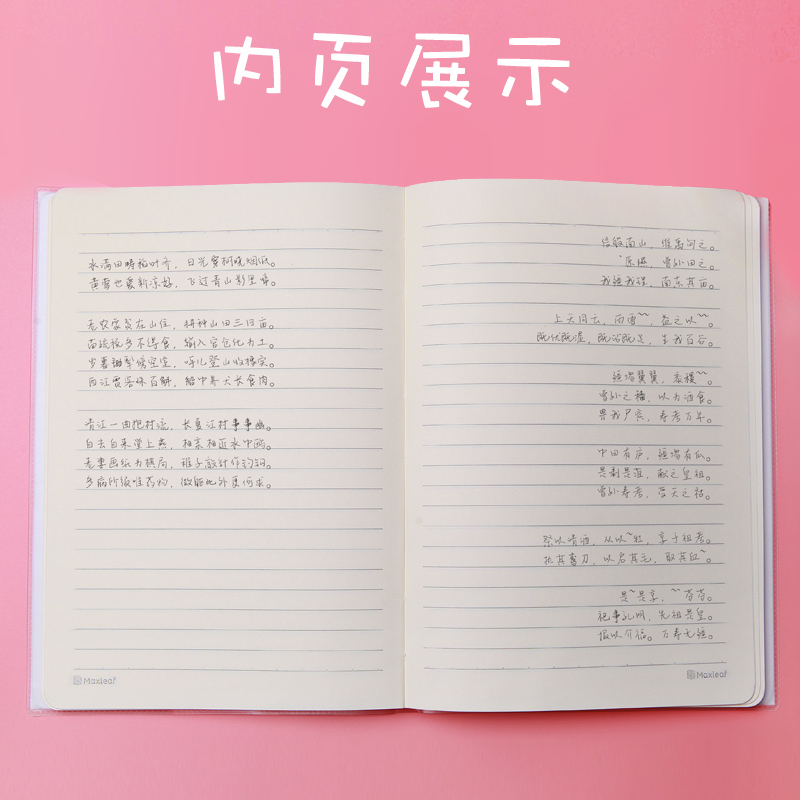 内页展示
水满田畴稻叶齐，日光穿树晓烟低。
黄莺也爱新凉好，飞过青山影里啼。
老农家贫在山住，耕种山田三四亩。
苗疏税多不得食，输入官仓化为土。
岁暮锄犁傍空室，呼儿登山收橡实。
西江贾客珠百斛，船中养犬长食肉。
清江一曲抱村流，长夏江村事事幽。
自去自来堂上燕，相亲相近水中鸥。
老妻画纸为棋局，稚子敲针作钓钩。
多病所须唯药物，微躯此外更何求。
Maxleaf
信彼南山，维禹甸之。
~原隰，曾孙田之。
我疆我理，南东其亩。
上天同云，雨雪~~，益之以~~。
既优既渥，既沾既足，生我百谷。
疆埸翼翼，黍稷~~。
曾孙之穑，以为酒食。
畀我尸宾，寿考万年。
中田有庐，疆埸有瓜。
是剥是菹，献之皇祖。
曾孙寿考，受天之祜。
祭以清酒，从以~牡，享于祖考。
执其鸾刀，以启其毛，取其血~。
是~是享，~~芬芬。
祀事孔明，先祖是皇。
报以介福。万寿无疆。
Maxleaf